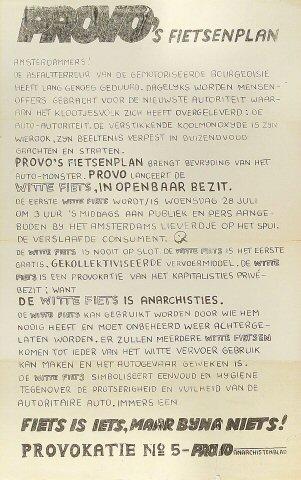 PROVO's FIETSENPLAN
AMSTERDAMMERS!
DE ASFALTTERREUR VAN DE GEMOTORISEERDE BOURGEOISIE
HEEFT LANG GENOEG GEDUURD. DAGELYKS WORDEN MENSEN-
OFFERS GEBRACHT VOOR DE NIEUWSTE AUTORITEIT WAAR-
AAN HET KLOOTJESVOLK ZICH HEEFT OVERGELEVERD: DE
AUTO-AUTORITEIT. DE VERSTIKKENDE KOOLMONOXYDE IS ZYN
WIEROOK, ZYN BEELTENIS VERPEST IN DUIZENDVOUD
GRACHTEN EN STRATEN.
PROVO'S FIETSENPLAN BRENGT BEVRYDING VAN HET
AUTO-MONSTER. PROVO LANCEERT DE
WITTE FIETS, IN OPENBAAR BEZIT.
DE EERSTE WITTE FIETS WORDT/IS WOENSDAG 28 JULI
OM 3 UUR 'S MIDDAGS AAN PUBLIEK EN PERS AANGE-
BODEN BY HET AMSTERDAMS LIEVERDJE OP HET SPUI.
DE VERSLAAFDE CONSUMENT.
DE WITTE FIETS IS NOOIT OP SLOT. DE WITTE FIETS IS HET EERSTE
GRATIS, GEKOLLEKTIVISEERDE VERVOERMIDDEL. DE WITTE
FIETS IS EEN PROVOKATIE VAN HET KAPITALISTIES PRIVÉ-
BEZIT; WANT
DE WITTE FIETS IS ANARCHISTIES.
DE WITTE FIETS KAN GEBRUIKT WORDEN DOOR WIE HEM
NODIG HEEFT EN MOET ONBEHEERD WEER ACHTERGE-
LATEN WORDEN. ER ZULLEN MEERDERE WITTE FIETSEN
KOMEN TOT IEDER VAN HET WITTE VERVOER GEBRUIK
KAN MAKEN EN HET AUTOGEVAAR GEWEKEN IS.
DE WITTE FIETS SYMBOLISEERT EENVOUD EN HYGIENE
TEGENOVER DE PROTSERIGHEID EN VUILHEID VAN DE
AUTORITAIRE AUTO. IMMERS EEN
FIETS IS IETS, MAAR BYNA NIETS!
PROVOKATIE Nº 5 - PROVO ANARCHISTENBLAD